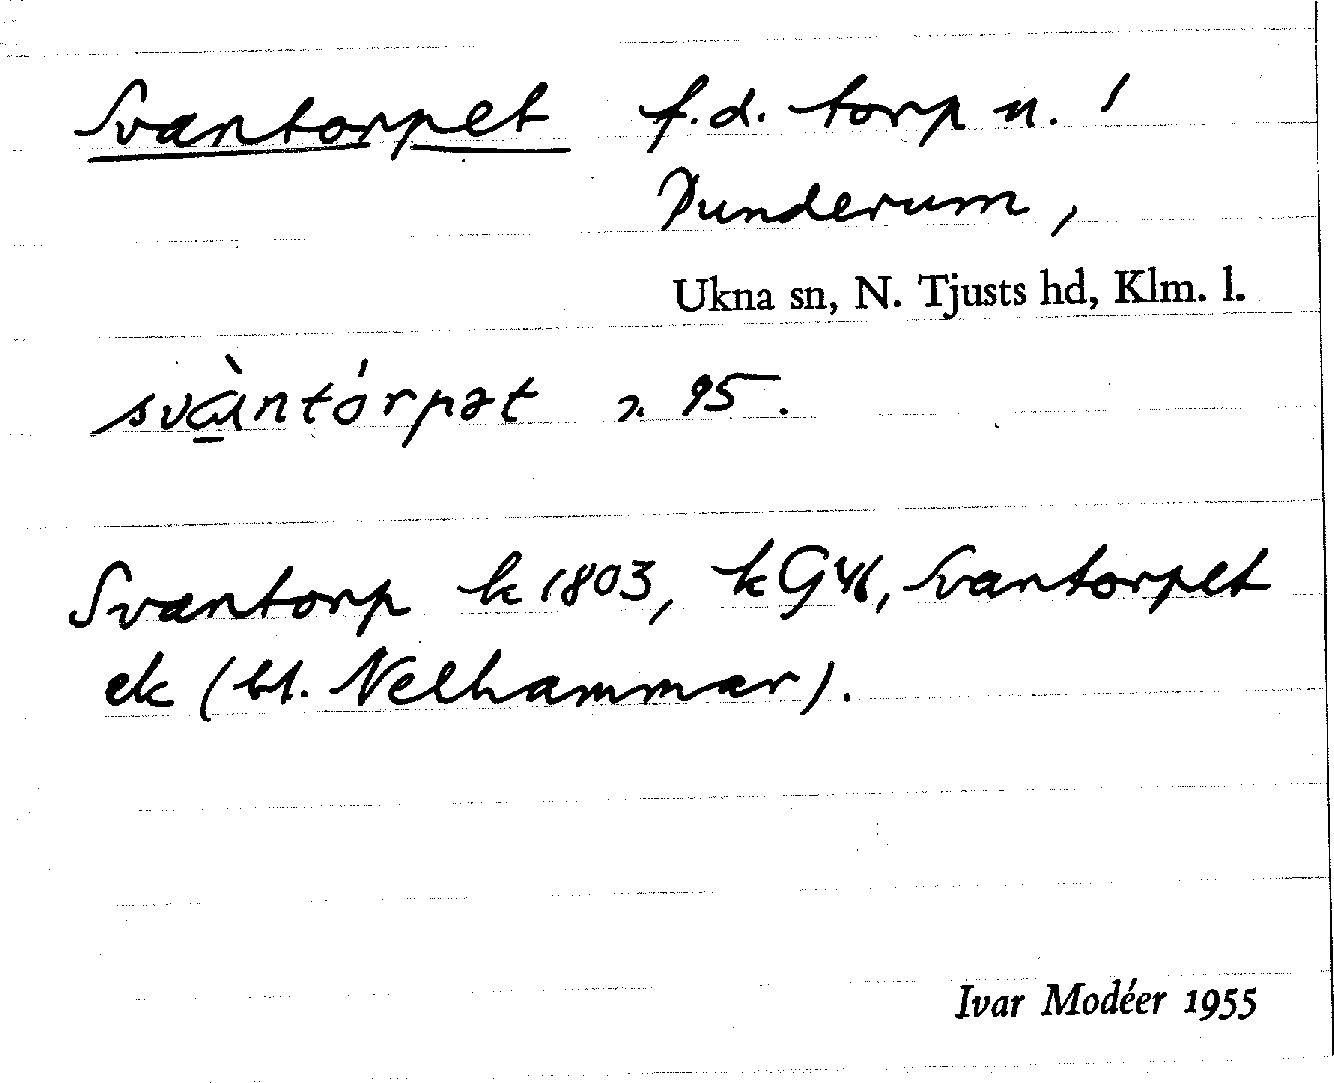 Svantorpet f.d. torp u. !
Dunderum,
Ukna sn, N. Tjusts hd, Klm. l.
svàntórpət 95.
Svantorp k 1803, k G46, Svantorpet
ek (bl. Nelhammar).
Ivar Modéer 1955